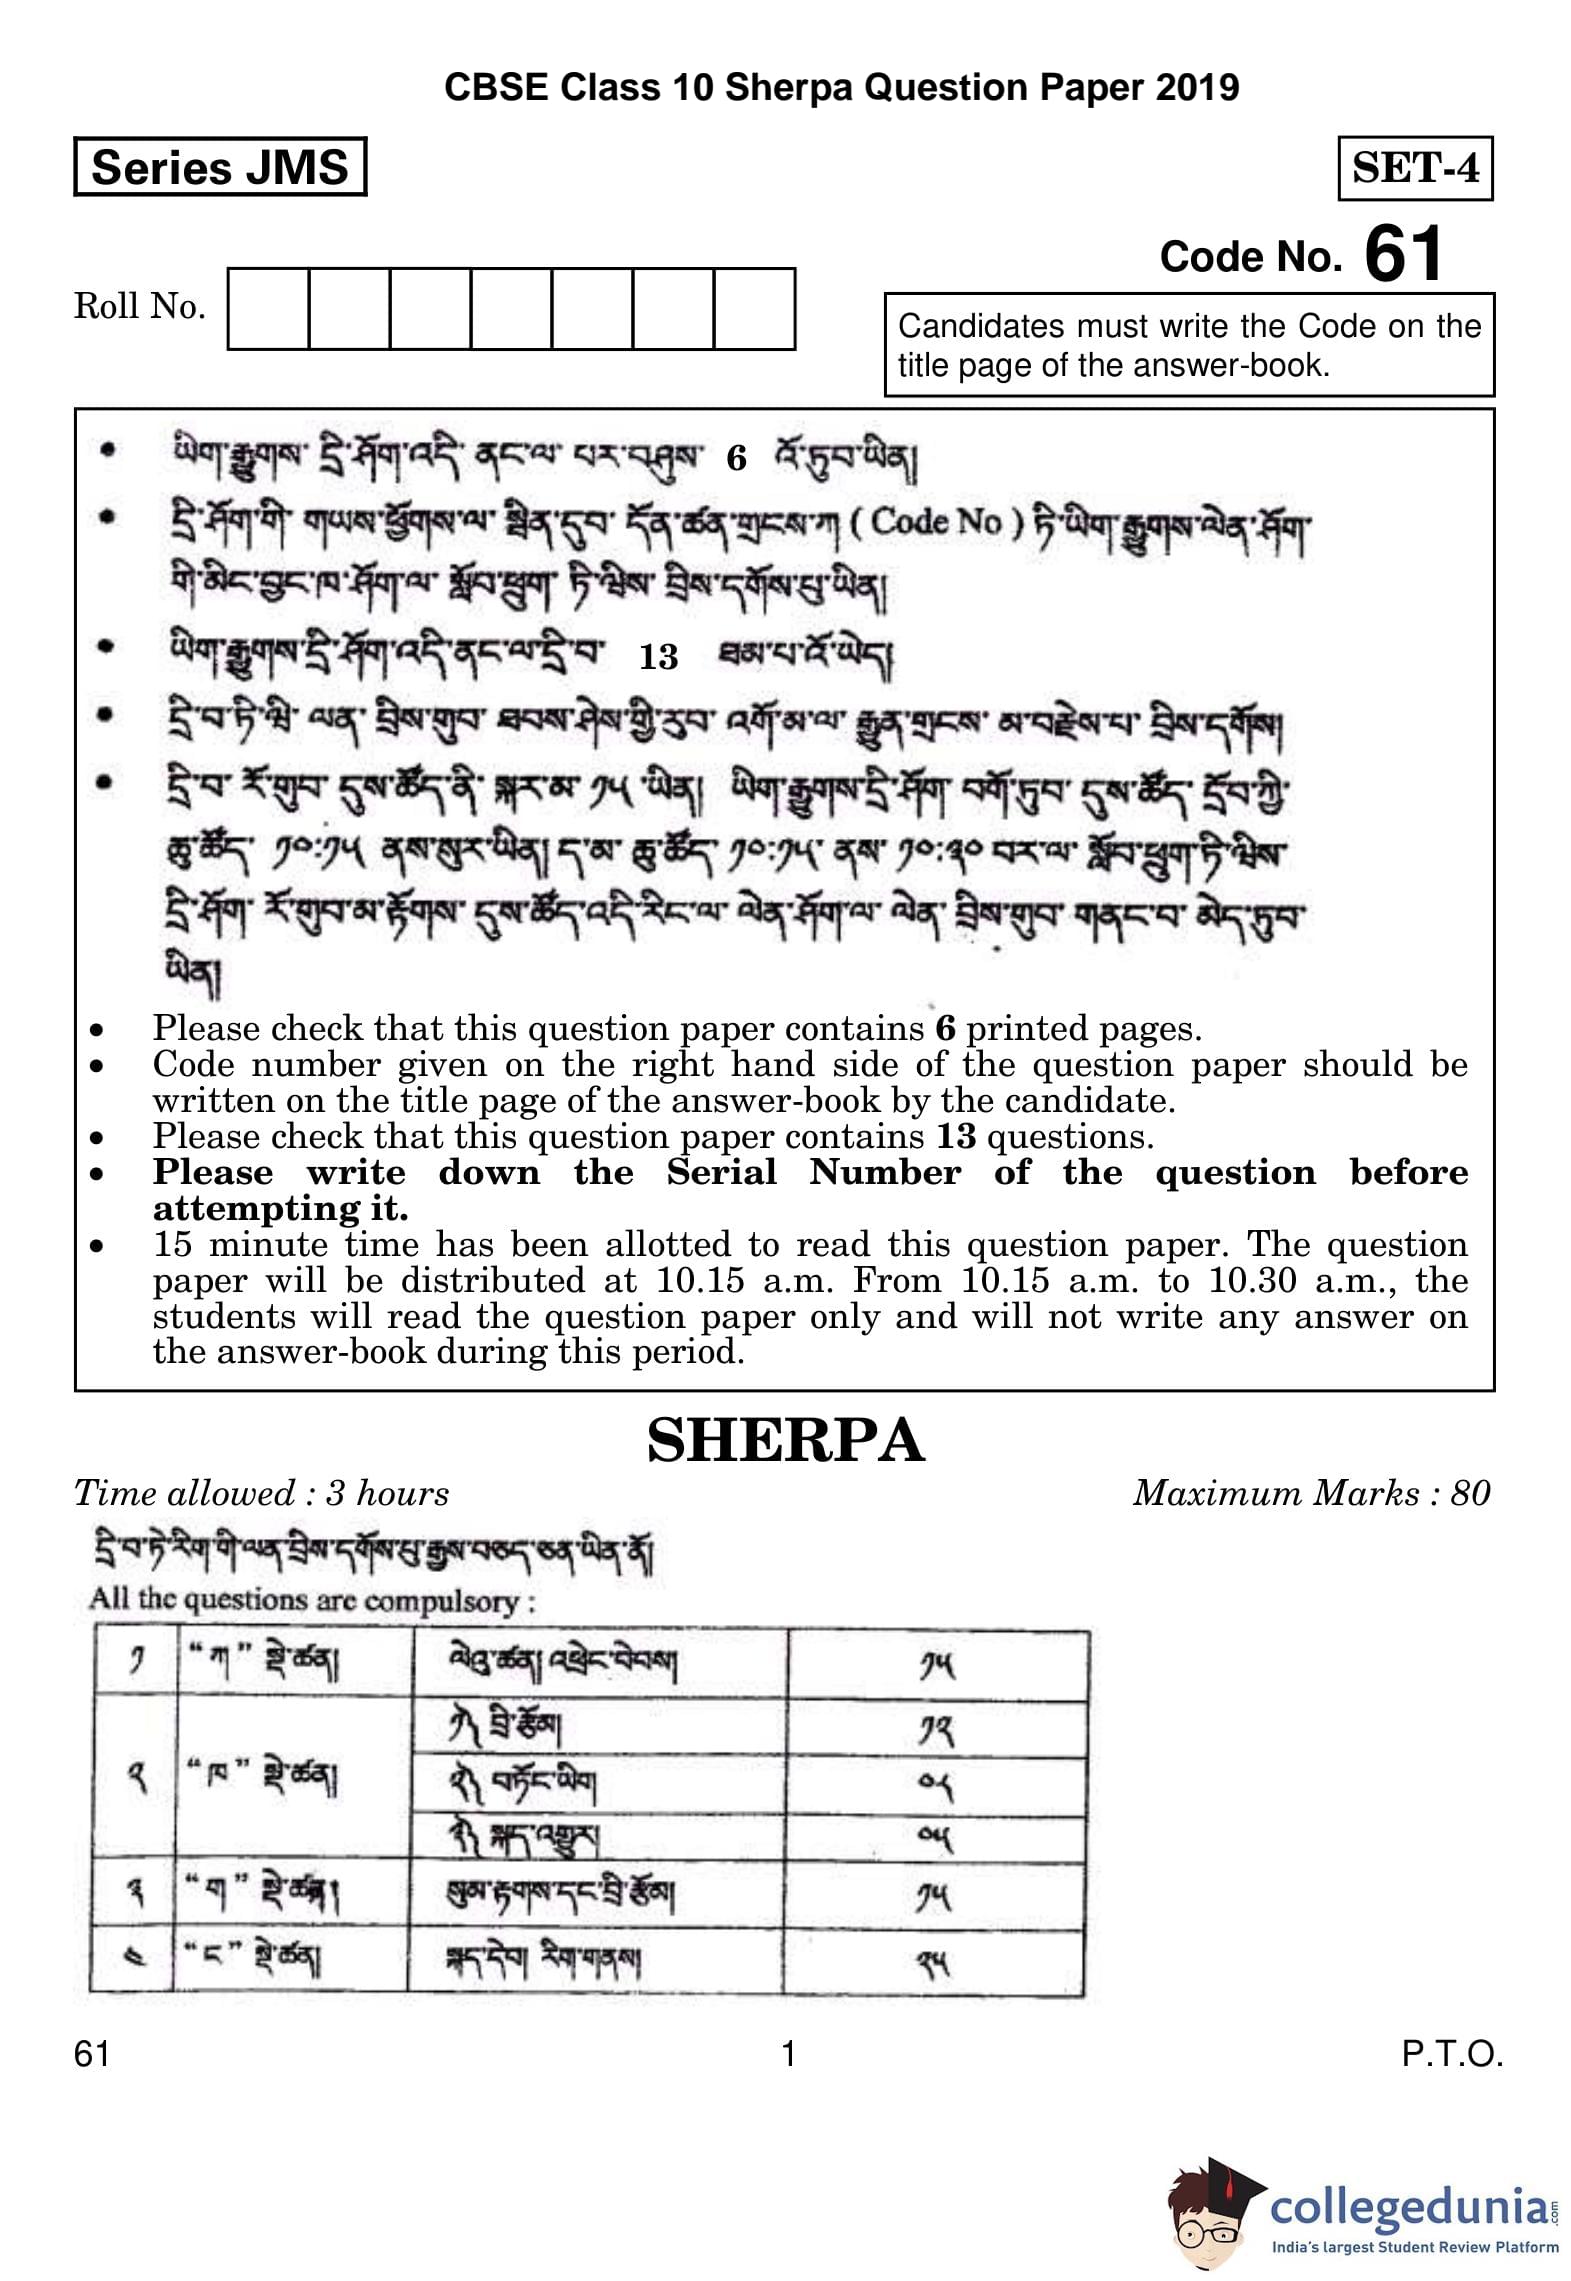 CBSE Class 10 Sherpa Question Paper 2019
Series JMS
SET-4
Code No. 61
Roll No.
Candidates must write the Code on the
title page of the answer-book.
• ཡིག་རྒྱུགས་ དྲི་ཤོག་འདི་ ནང་ལ་ པར་བཤུས་ 6 འོ་ཏུབ་ཡིན།
• དྲི་ཤོག་གི་ གཡས་ཕྱོགས་ལ་ སྦིན་དུབ་ དོན་ཚན་གྲངས་ཀ ( Code No ) ཏི་ཡིག་རྒྱུགས་ལེན་ཤོག་
གི་མིང་བྱང་ཁ་ཤོག་ལ་ སློབ་ཕྲུག་ ཏི་ཝིས་ བྲིས་དགོས་པུ་ཡིན།
• ཡིག་རྒྱུགས་དྲི་ཤོག་འདི་ནང་ལ་དྲི་བ་ 13 ཐམ་པ་འོ་ཡེད།
• དྲི་བ་ཏི་ཝི་ ལན་ བྲིས་གུབ་ ཐབས་ཤེས་ཀྱི་རུབ་ འགོ་མ་ལ་ རྒྱུན་གྲངས་ མ་བརྗེས་པ་ བྲིས་དགོས།
• དྲི་བ་ རོ་གུབ་ དུས་ཚོད་ནི་ སྐར་མ་ ༡༥ ་ཡིན། ཡིག་རྒྱུགས་དྲི་ཤོག་ བགོ་ཏུབ་ དུས་ཚོད་ དྲོབ་ཀྱི་
ཆུ་ཚོད་ ༡༠:༡༥ ནས་སུར་ཡིན། ད་མ་ ཆུ་ཚོད་ ༡༠:༡༥་ ནས་ ༡༠:༣༠ བར་ལ་ སློབ་ཕྲུག་ཏི་ཝིས་
དྲི་ཤོག་ རོ་གུབ་མ་རྟོགས་ དུས་ཚོད་འདི་རིང་ལ་ ལེན་ཤོག་ལ་ ལེན་ བྲིས་གུབ་ གནང་བ་ མེད་ཏུབ་
ཡིན།
• Please check that this question paper contains 6 printed pages.
• Code number given on the right hand side of the question paper should be
written on the title page of the answer-book by the candidate.
• Please check that this question paper contains 13 questions.
• Please write down the Serial Number of the question before
attempting it.
• 15 minute time has been allotted to read this question paper. The question
paper will be distributed at 10.15 a.m. From 10.15 a.m. to 10.30 a.m., the
students will read the question paper only and will not write any answer on
the answer-book during this period.
SHERPA
Time allowed : 3 hours
Maximum Marks : 80
དྲི་བ་ཏེ་རིག་གི་ལན་བྲིས་དགོས་པུ་རྒྱས་བཅད་ཅན་ཡིན་ནོ།
All the questions are compulsory :
༡ “ ཀ ” སྡེ་ཚན། ལེའུ་ཚན། འཕྲེང་བེབས། ༡༥
༡༽ བྲི་རྩོམ། ༡༢
༢ “ ཁ ” སྡེ་ཚན། ༢༽ བཏོང་ཡིག ༠༨
༣༽ སྐད་འགྱུར། ༠༥
༣ “ ག ” སྡེ་ཚན། སུམ་རྟགས་དང་བྲི་རྩོམ། ༡༥
༤ “ ང ” སྡེ་ཚན། སྐད་དེབ། རིག་གནས། ༢༥
61
1
P.T.O.
collegedunia.com
India's largest Student Review Platform